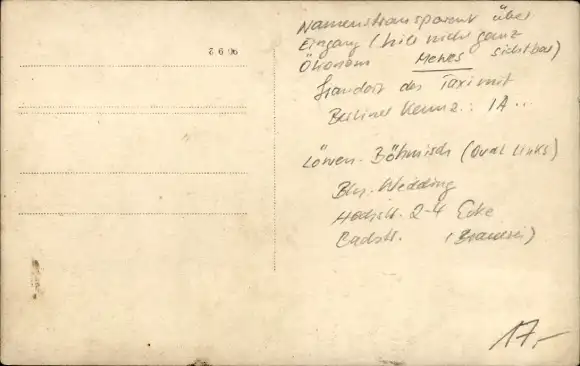 Namenstransparent über
Eingang (hier nicht ganz
Ökonom Mewes sichtbar)
Standort des Taxi mit
Berliner Kennz.: IA..
Löwen-Böhmisch (Oval links)
Bln.-Wedding
Hochstr. 2-4 Ecke
(Brauerei)
96 9 2
17,-